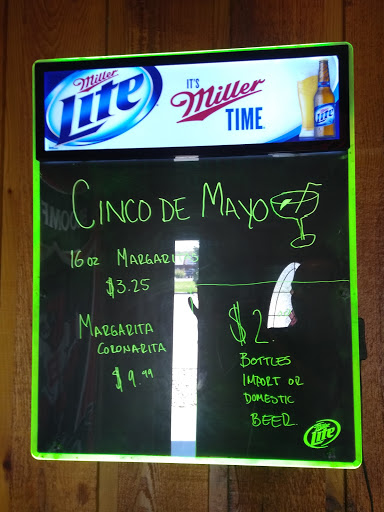 Miller
Lite
IT'S
Miller
TIME
CINCO DE MAYO
16 oz MARGARITAS
$3.25
MARGARITA
CORONARITA
$9.99
$2.
BOTTLES
IMPORT OR
DOMESTIC
BEER
Miller
Lite